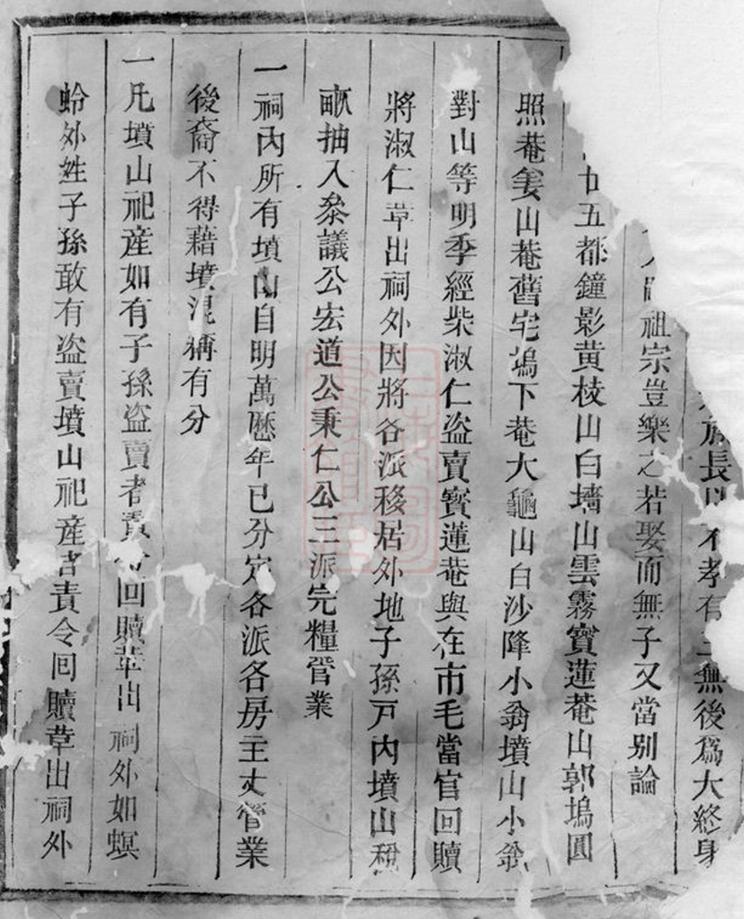 族長以不孝有三無後爲大終身
祖宗豈樂之若娶而無子又當別論
廿五都鐘影黃枝山白墻山雲霧寶蓮菴山郭塢圓
照菴姜山菴舊宅塢下菴大龜山白沙降小翁墳山小翁
對山等明季經柴淑仁盜賣寶蓮菴與在市毛當官回贖
將淑仁革出祠外因將各派移居外地子孫戸內墳山稅
畝抽入叅議公宏道公秉仁公三派完糧管業
一祠內所有墳山自明萬曆年已分定各派各房主丈管業
後裔不得藉墳混稱有分
一凡墳山祀産如有子孫盜賣者責令回贖革出祠外如螟
蛉外姓子孫敢有盜賣墳山祀産者責令回贖革出祠外